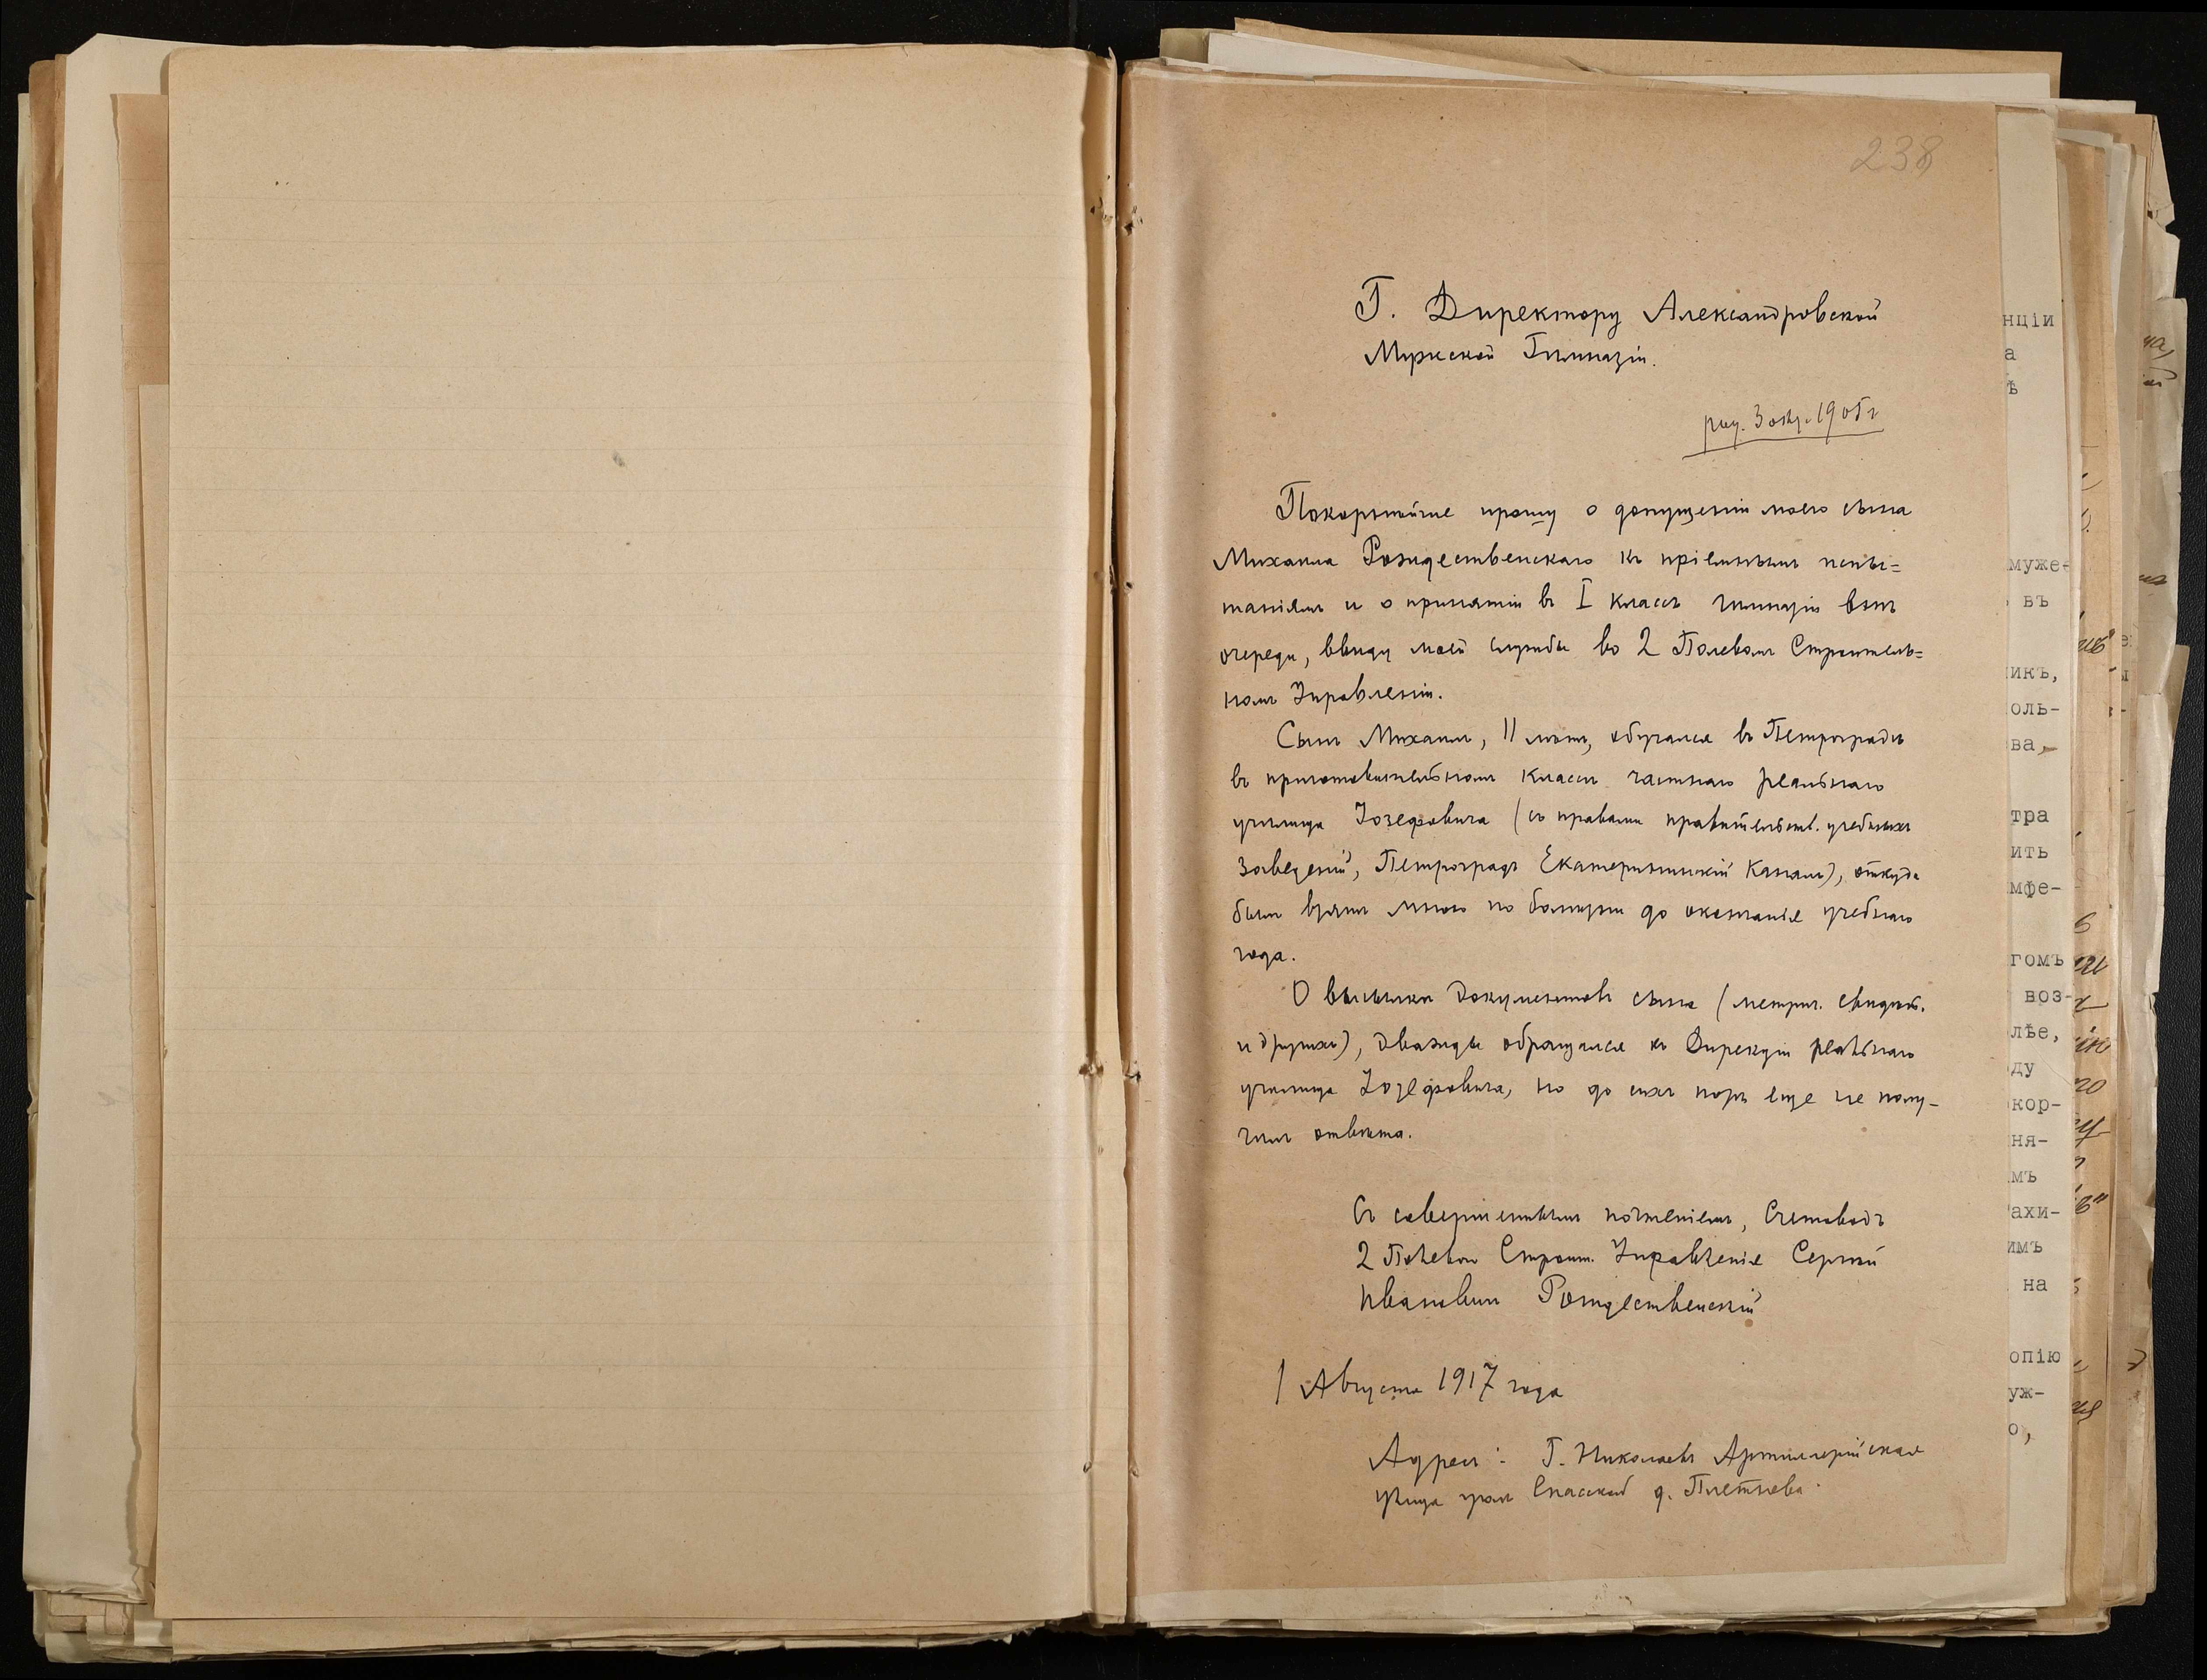 238
Г. Директору Александровской
Мужской Гимназіи.
род. 3 окт. 1905 г
Покорнѣйше прошу о допущеніи моего сына
Михаила Рождественскаго къ пріемнымъ испы=
таніямъ и о принятіи въ I классъ гимназіи внѣ
очереди, ввиду моей службы во 2 Полевомъ Строитель=
номъ Управленіи.
Сынъ Михаилъ, 11 лѣтъ, обучался въ Петроградѣ
въ приготовительномъ классѣ частнаго реальнаго
училища Іозефовича (съ правами правительств. учебныхъ
заведеній, Петроградъ Екатерининскій Каналъ), откуда
былъ взятъ мною по болѣзни до окончанія учебнаго
года.
О высылкѣ документовъ сына (метрич. свидѣт.
и другихъ), дважды обращался къ Дирекціи реальнаго
училища Іозефовича, но до сихъ поръ еще не полу-
чилъ отвѣта.
Съ совершеннымъ почтеніемъ, Счетоводъ
2 Полевого Строит. Управленія Сергѣй
Ивановичъ Рождественскій
1 Августа 1917 года
Адресъ: Г. Николаевъ Артиллерійская
улица уголъ Спасской д. Плетнева.
нціи
а
ѣ
муже-
въ
икъ,
оль-
ва,-
тра
ить
мфе-
гомъ
воз-
лѣе,
ду
кор-
ня-
мъ
ахи-
имъ
на
опію
уж-
о,